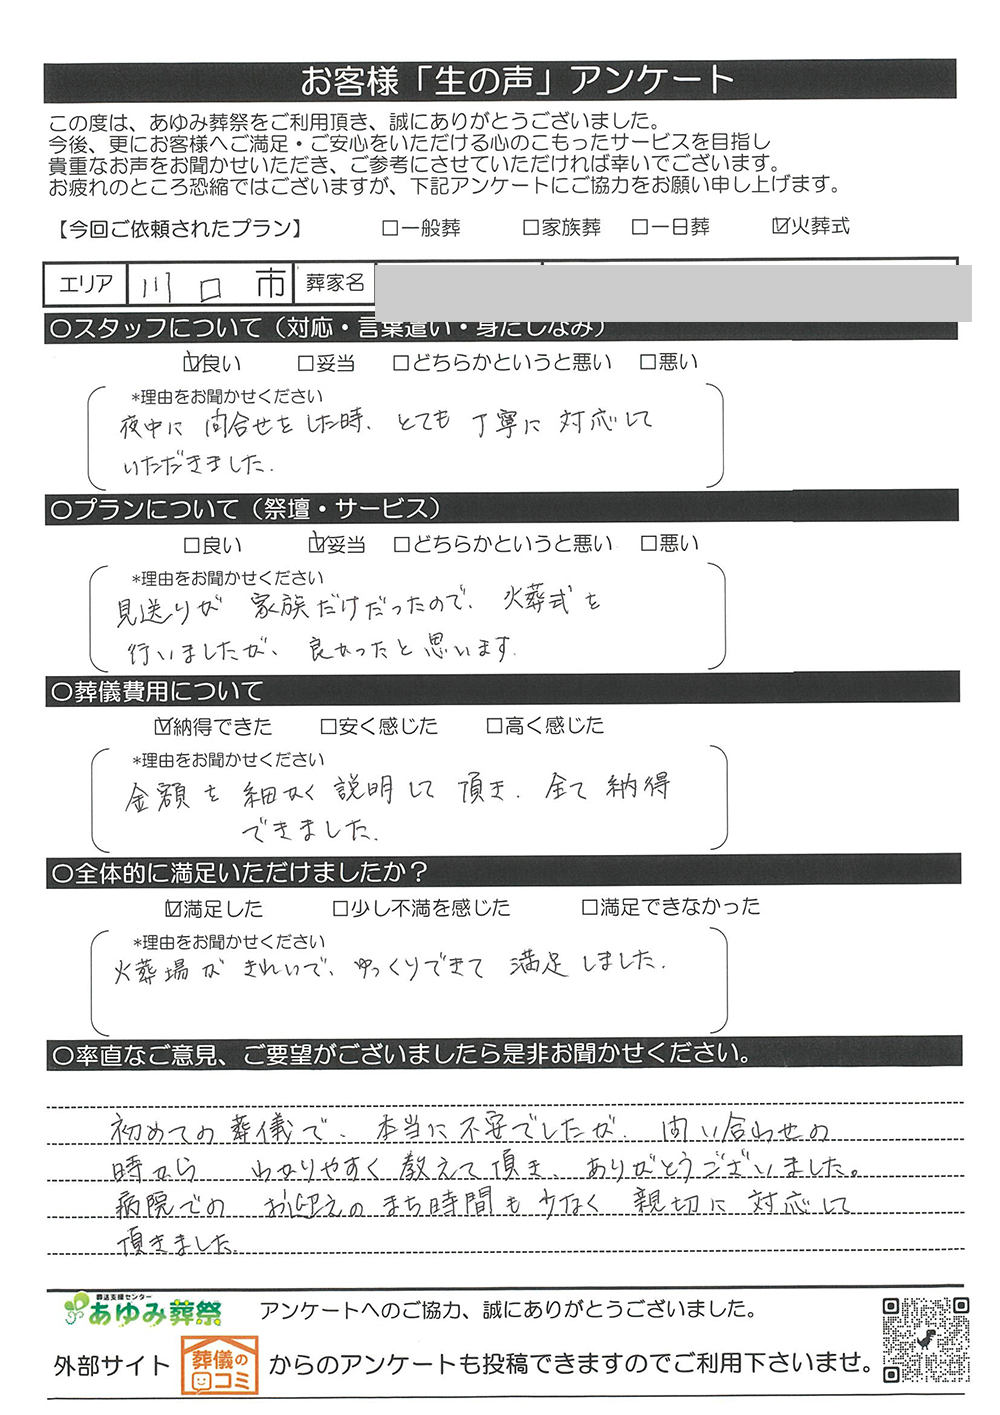 お客様「生の声」アンケート
この度は、あゆみ葬祭をご利用頂き、誠にありがとうございました。
今後、更にお客様へご満足・ご安心をいただける心のこもったサービスを目指し
貴重なお声をお聞かせいただき、ご参考にさせていただければ幸いでございます。
お疲れのところ恐縮ではございますが、下記アンケートにご協力をお願い申し上げます。
【今回ご依頼されたプラン】 □一般葬 □家族葬 □一日葬 ☑火葬式
エリア 川口 市 葬家名
○スタッフについて（対応・言葉遣い・身だしなみ）
☑良い □妥当 □どちらかというと悪い □悪い
*理由をお聞かせください
夜中に 問合せをした時、とても 丁寧に 対応して
いただきました。
○プランについて（祭壇・サービス）
□良い ☑妥当 □どちらかというと悪い □悪い
*理由をお聞かせください
見送りが 家族だけだったので、火葬式を
行いましたが、良かったと思います。
○葬儀費用について
☑納得できた □安く感じた □高く感じた
*理由をお聞かせください
金額を 細かく 説明して 頂き、全て納得
できました。
○全体的に満足いただけましたか？
☑満足した □少し不満を感じた □満足できなかった
*理由をお聞かせください
火葬場が きれいで、ゆっくりできて 満足しました。
○率直なご意見、ご要望がございましたら是非お聞かせください。
初めての葬儀で、本当に不安でしたが、問い合わせの
時から わかりやすく教えて頂き、ありがとうございました。
病院での お迎えのまち時間も少なく 親切に 対応して
頂きました。
葬送支援センター
あゆみ葬祭 アンケートへのご協力、誠にありがとうございました。
外部サイト 葬儀の口コミ からのアンケートも投稿できますのでご利用下さいませ。